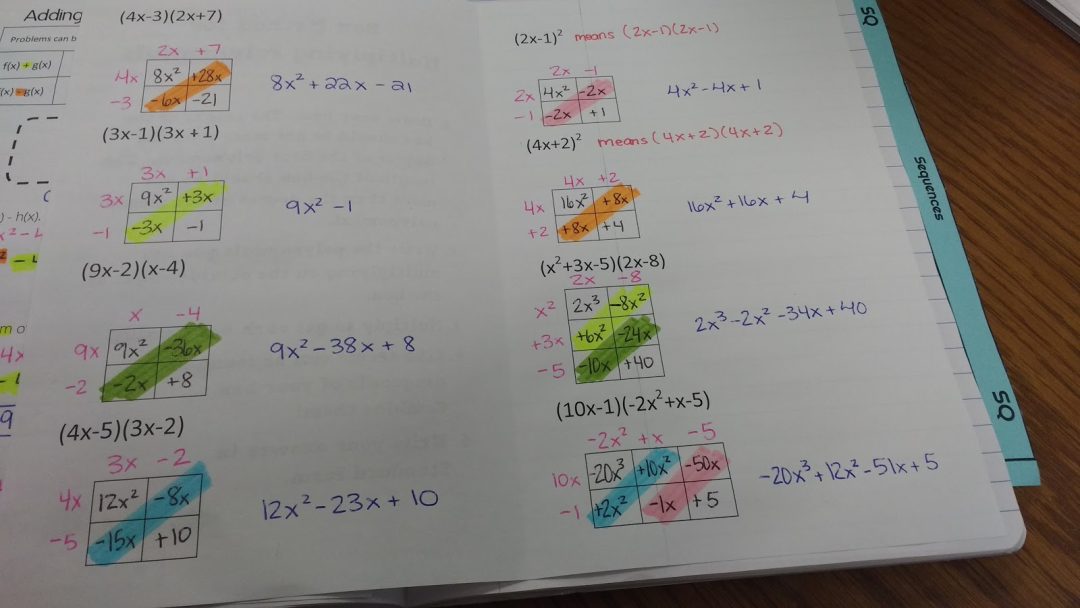 Adding
Problems can b
f(x) + g(x)
(x) - g(x)
C
) - h(x).
x² - 4
m o
4x
9
(4x-3)(2x+7)
2x +7
4x 8x² +28x
-3 -6x -21
8x² + 22x - 21
(3x-1)(3x+1)
3x +1
3x 9x² +3x
-1 -3x -1
9x² - 1
(9x-2)(x-4)
x -4
9x 9x² -36x
-2 -2x +8
9x² - 38x + 8
(4x-5)(3x-2)
3x -2
4x 12x² -8x
-5 -15x +10
12x² - 23x + 10
(2x-1)² means (2x-1)(2x-1)
2x -1
2x 4x² -2x
-1 -2x +1
4x² - 4x + 1
(4x+2)² means (4x+2)(4x+2)
4x +2
4x 16x² +8x
+2 +8x +4
16x² + 16x + 4
(x²+3x-5)(2x-8)
2x -8
x² 2x³ -8x²
+3x +6x² -24x
-5 -10x +40
2x³ - 2x² - 34x + 40
(10x-1)(-2x²+x-5)
-2x² +x -5
10x -20x³ +10x² -50x
-1 +2x² -1x +5
-20x³ + 12x² - 51x + 5
SQ
Sequences
SQ